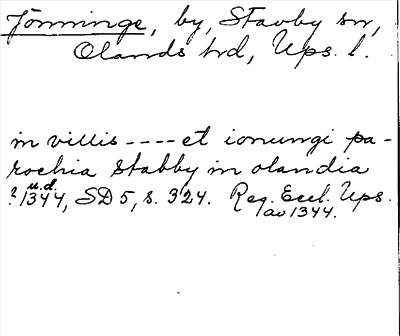 Jönninge, by, Stavby sn,
Olands hd, Ups. l.
in villis ---- et ionungi pa-
rochia stabby in olandia
u.d.
? 1344, SD 5, s. 324. Reg. Eccl. Ups.
av 1344.